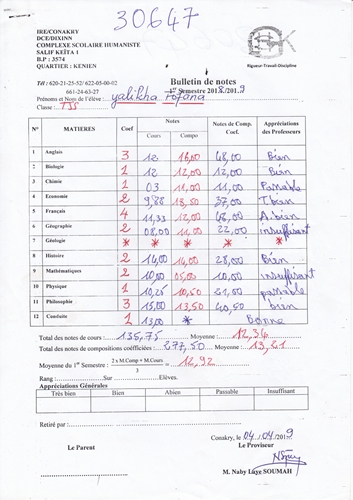 30647
IRE/CONAKRY
DCE/DIXINN
COMPLEXE SCOLAIRE HUMANISTE
SALIF KEÏTA I
B.P : 3574
QUARTIER : KENIEN
Rigueur-Travail-Discipline
Tél : 620-21-25-52/ 622-05-00-02
661-24-63-27
Bulletin de notes
1er Semestre 2018/2019
Prénoms et Nom de l'élève : yalikha Fofana
Classe : TSS
N° MATIERES Coef Notes Notes de Comp. Coef. Appréciations des Professeurs
Cours Compo
1 Anglais 3 12 16,00 48,00 Bien
2 Biologie 1 12 12,00 12,00 Bien
3 Chimie 1 03 11,00 11,00 Passable
4 Economie 2 9,88 18,50 37,00 T.bien
5 Français 4 11,33 12,00 48,00 A.bien
6 Géographie 2 08,00 11,00 22,00 insuffisant
7 Géologie * * * *
8 Histoire 2 14,00 14,00 28,00 Bien
9 Mathématiques 2 10,00 05,00 10,00 insuffisant
10 Physique 2 10,25 10,50 21,00 passable
11 Philosophie 3 15,00 13,50 40,50 bien
12 Conduite 1 13,00 * Bonne
Total des notes de cours : 135,75 Moyenne : 12,34
Total des notes de compositions coéfficiées : 277,50 Moyenne : 13,21
Moyenne du 1er Semestre : 2 x M.Comp + M.Cours = 12,92
3
Rang : Sur Elèves.
Appréciations Générales
Très bien Bien Abien Passable Insuffisant
Retiré par :
Conakry, le 04/04/2019
Le Parent Le Proviseur
M. Naby Laye SOUMAH